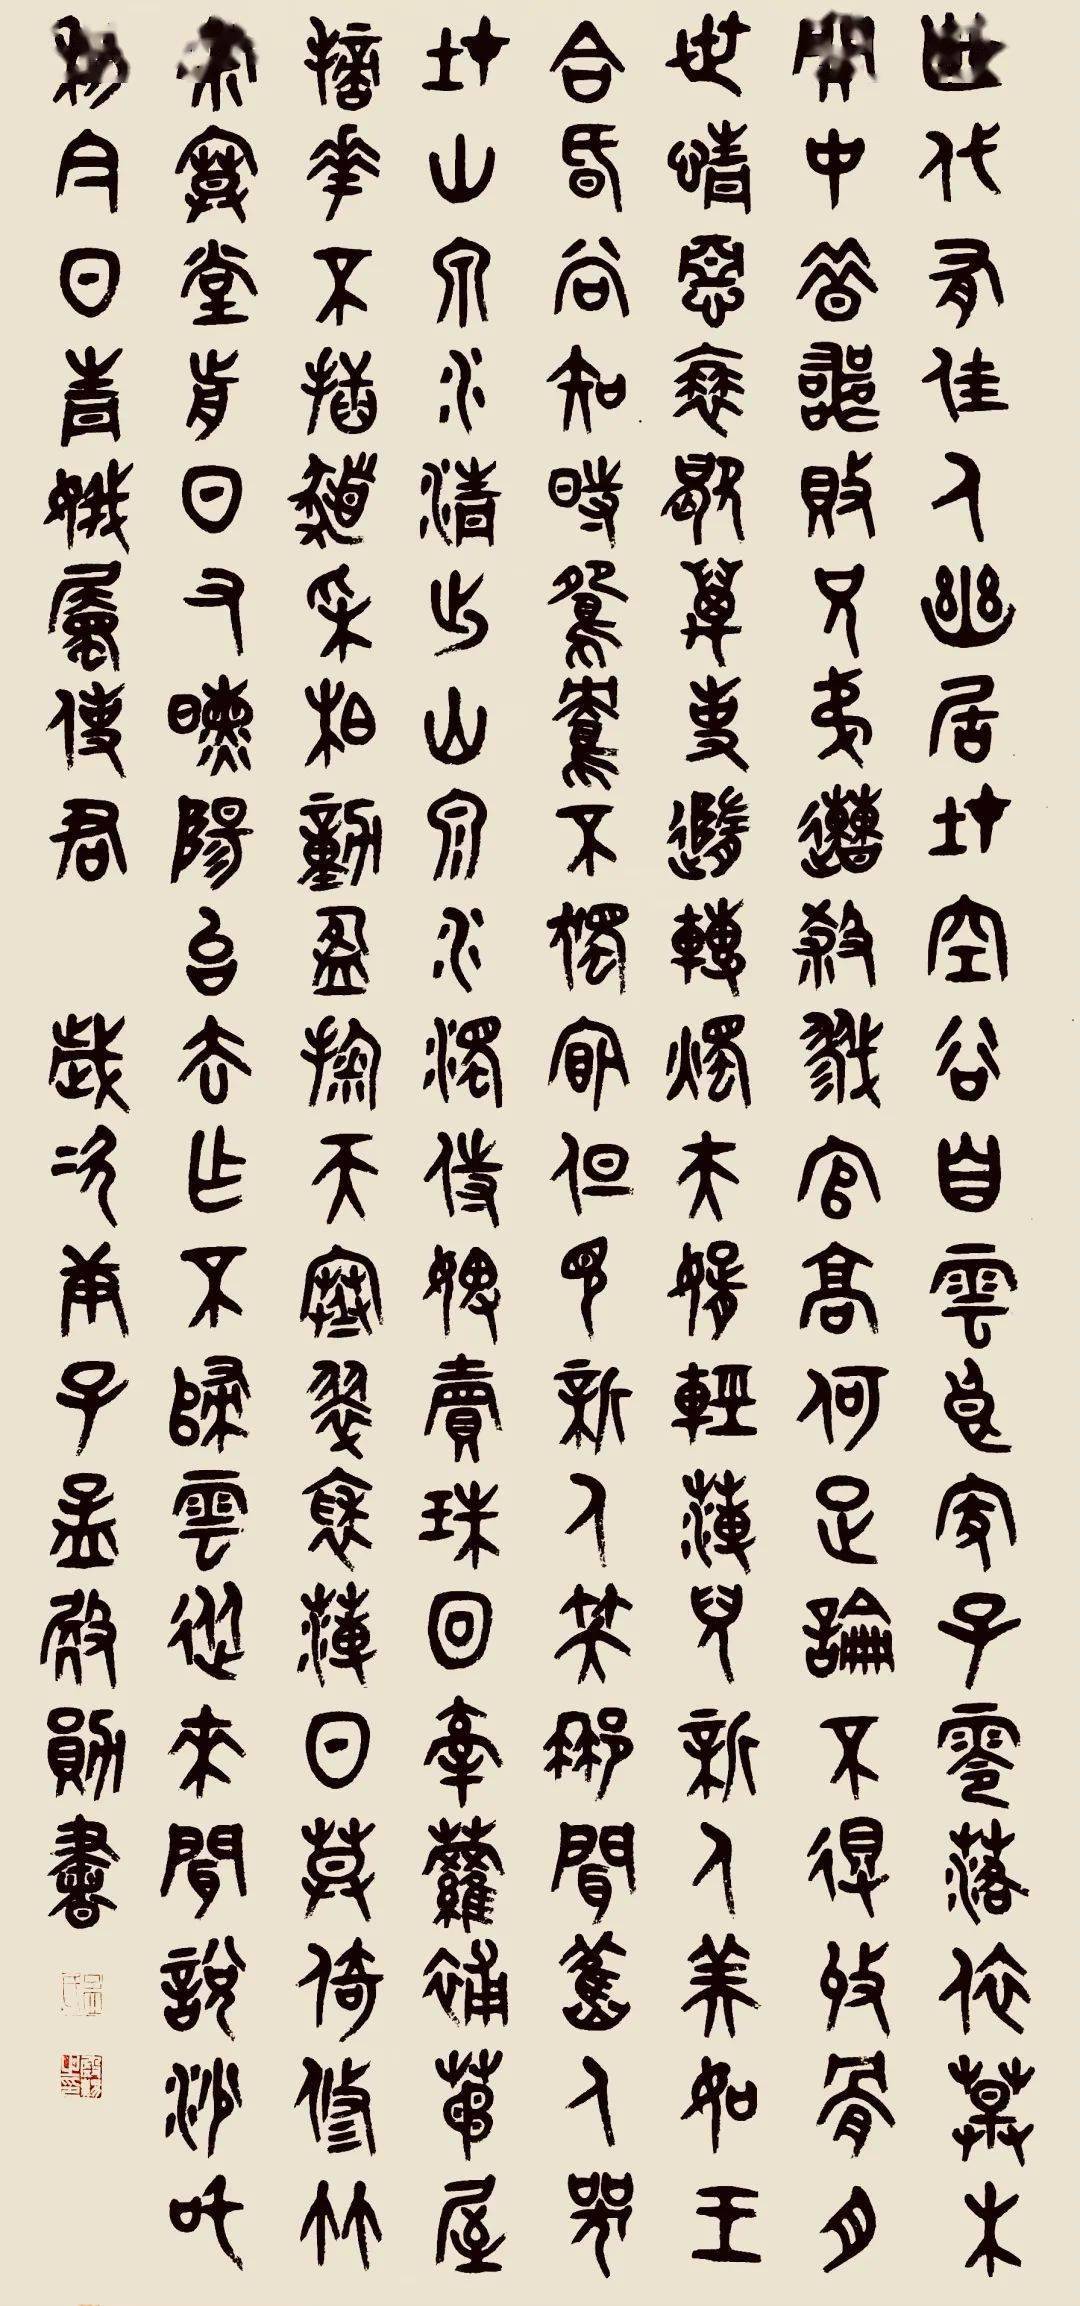 絕代有佳人幽居在空谷自雲良家子零落依草木
關中昔喪敗兄弟遭殺戮官高何足論不得收骨肉
世情惡衰歇萬事隨轉燭夫婿輕薄兒新人美如玉
合昏尚知時鴛鴦不獨宿但見新人笑那聞舊人哭
在山泉水清出山泉水濁侍婢賣珠回牽蘿補茅屋
摘花不插髮采柏動盈掬天寒翠袖薄日暮倚修竹
寂寞堂前日又曛陽台去作不歸雲從來聞說沙吒
利今日青娥屬使君 歲次庚子孟啟勛書